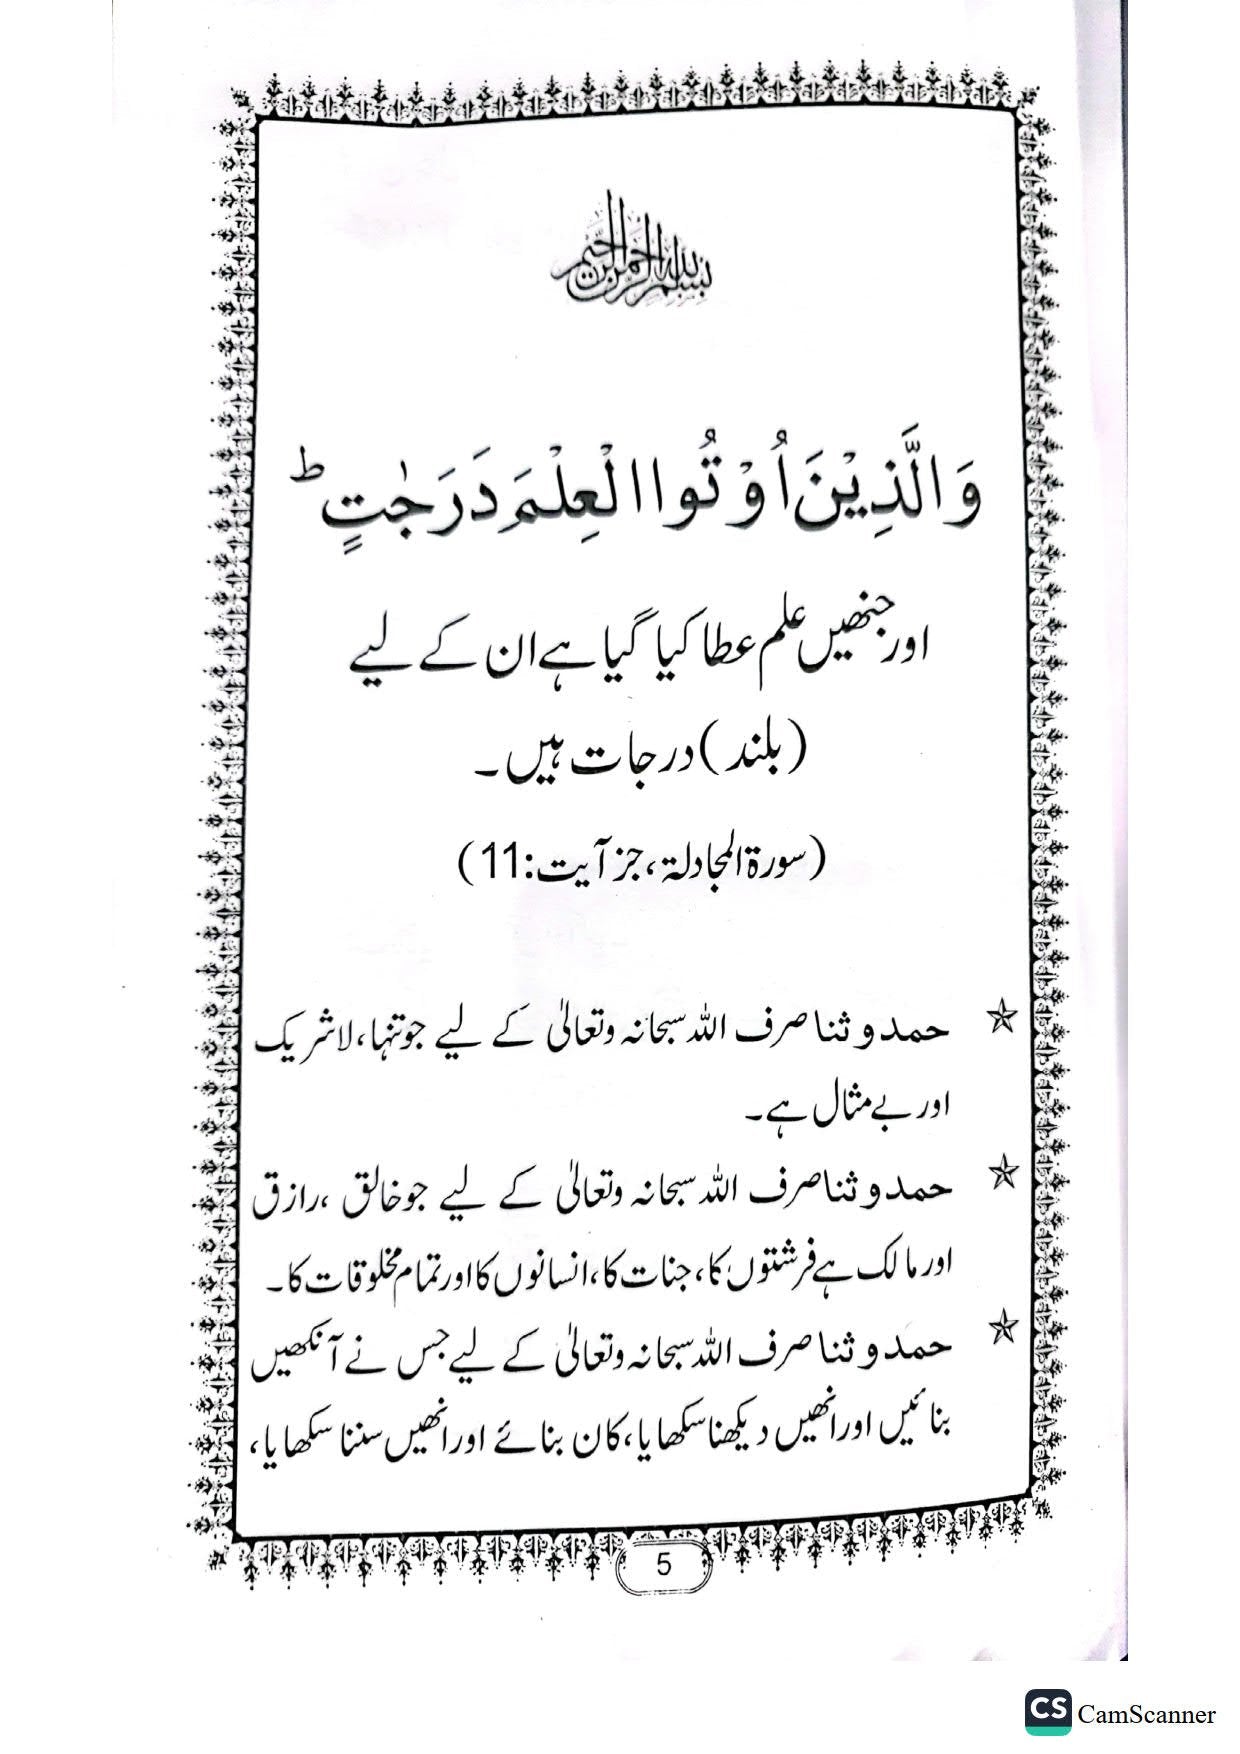 بسم الله الرحمن الرحيم
وَالَّذِیْنَ اُوْتُوا الْعِلْمَ دَرَجٰتٍ ؕ
اور جنھیں علم عطا کیا گیا ہے ان کے لیے
(بلند) درجات ہیں۔
(سورۃ المجادلۃ، جز آیت:11)
☆ حمد و ثنا صرف اللہ سبحانہ وتعالیٰ کے لیے جو تنہا، لا شریک
اور بے مثال ہے۔
☆ حمد و ثنا صرف اللہ سبحانہ وتعالیٰ کے لیے جو خالق ، رازق
اور مالک ہے فرشتوں کا، جنات کا، انسانوں کا اور تمام مخلوقات کا۔
☆ حمد و ثنا صرف اللہ سبحانہ وتعالیٰ کے لیے جس نے آنکھیں
بنائیں اور انھیں دیکھنا سکھایا، کان بنائے اور انھیں سننا سکھایا،
5
CS CamScanner